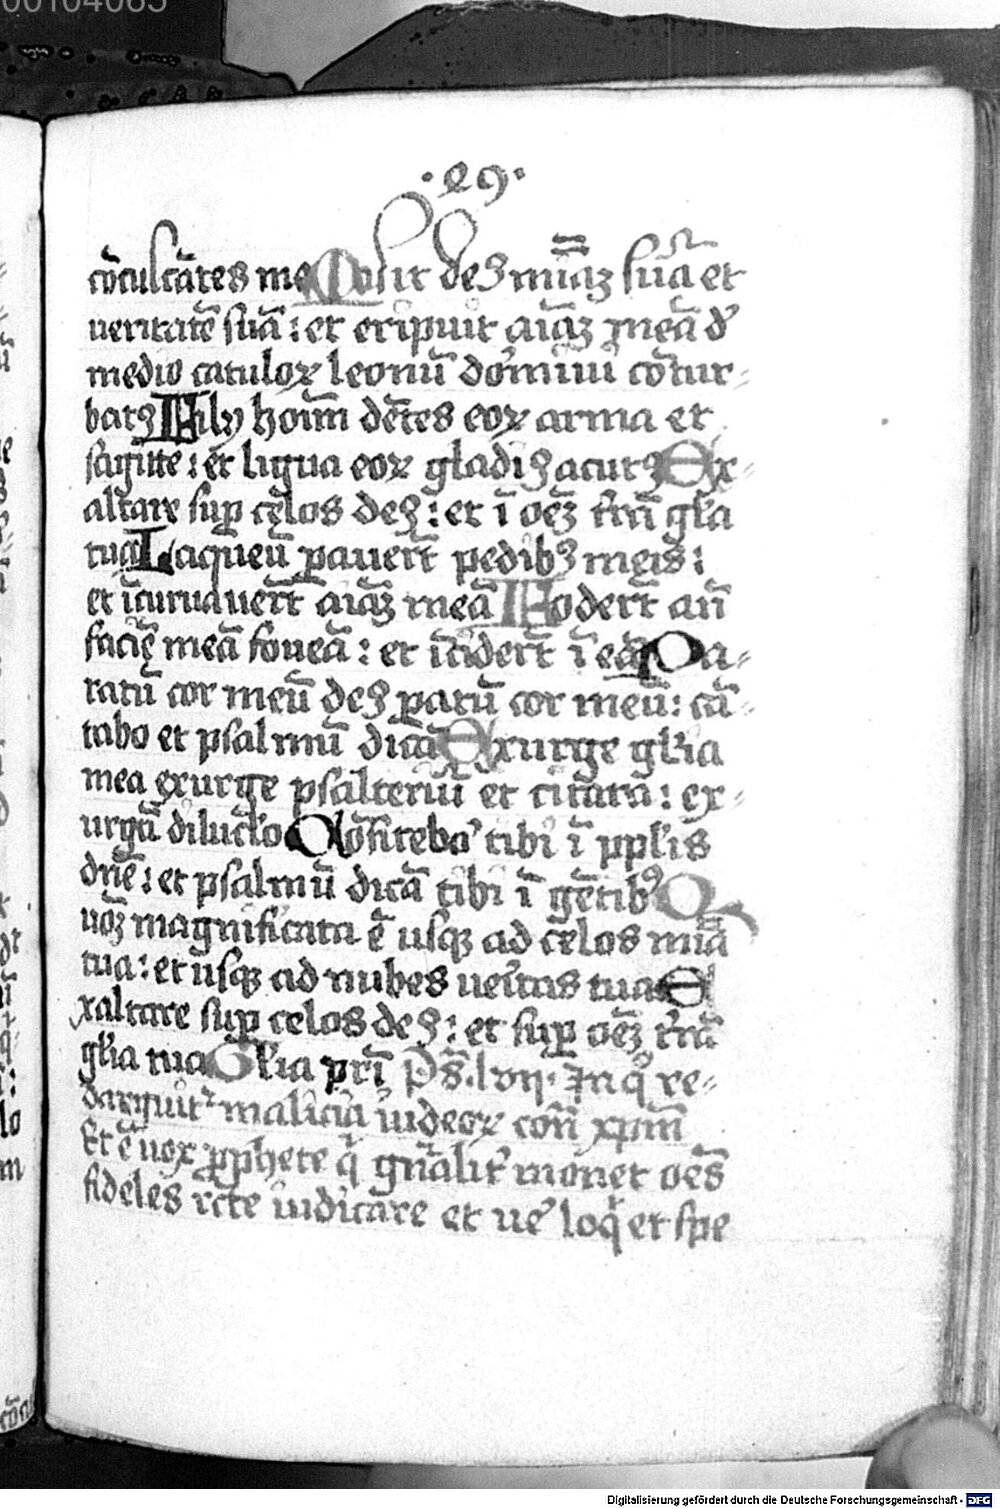 00104065
·29·
cōculcātes me Misit deꝰ mīāꝫ suā et
veritatē suā : et eripuit aīaꝫ meā d̕
medio catuloꝝ leonū dormiui cōtur⸗
batꝰ Filÿ hoīm dētes eoꝝ arma et
sagitte : et ligua eoꝝ gladiꝰ acutꝰ Ex⸗
altare suꝑ cęlos deꝰ : et ī oēꝫ trā̄ gl̄a
tua Laqueū ꝑauerūt pedibꝰ meis :
et īcuruauerūt aīaꝫ meā Foderūt an̄
faciē meā foueā : et īciderūt ī eā Pa⸗
ratū cor meū deꝰ paratū cor meū : cā⸗
tabo et psalmū dicā Exurge gl̄ia
mea exurge psalteriū et cithara : ex⸗
urgā diluc̄lo Cōfitebor tibi ī ppl̄is
dn̄e : et psalmū dicā tibi ī gētibꝰ Q̄
uoꝫ magnificata ē usqꝫ ad cēlos mīa
tua : et usqꝫ ad nubes ueritas tua E
xaltare suꝑ celos deꝰ : et suꝑ oēꝫ trā̄
gl̄ia tua Gl̄ia pr̄i p̄s. lvij. In qͦ re⸗
darguit maliciā iudeoꝝ cōn̄ xpm̄
Et ē uox ꝓphete qͥ gn̄alit̕ monet oēs
fideles rcte iudicare et ue̕ loqͥ et spe
cōcu
Digitalisierung gefördert durch die Deutsche Forschungsgemeinschaft - DFG